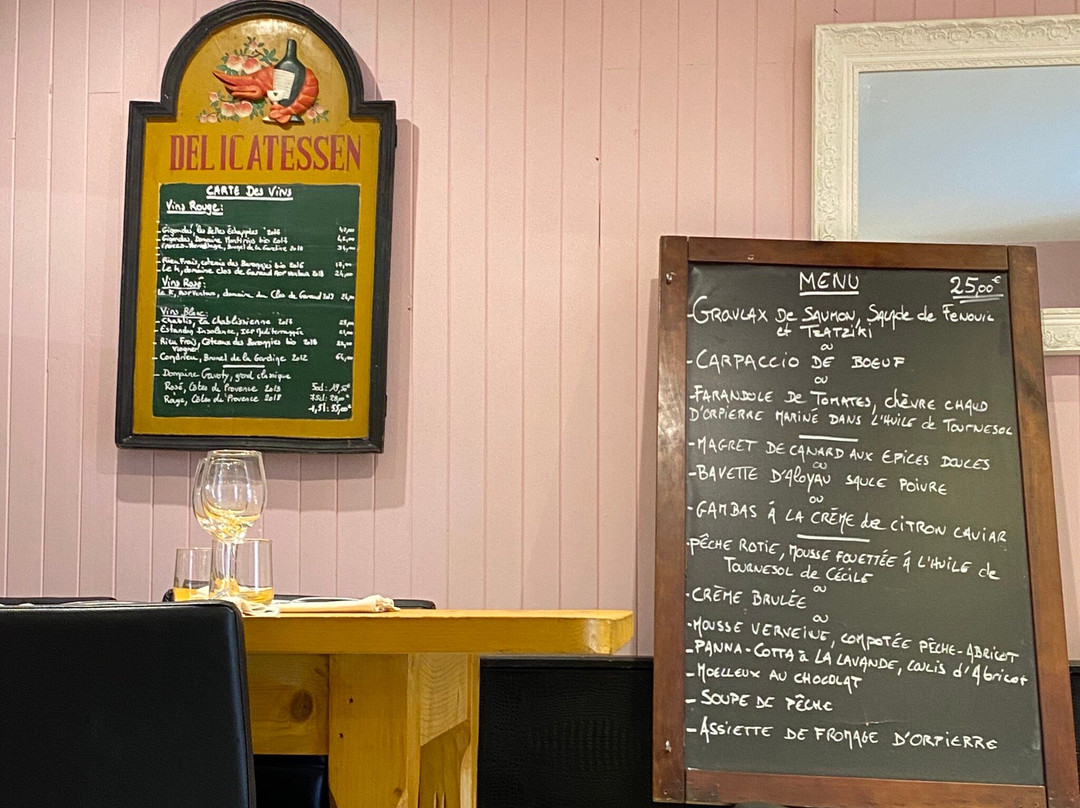 DELICATESSEN
CARTE Des Vins
Vins Rouge:
Gigondas, 2016 42,00
Gigondas, Domaine Montirius bio
Brunel de la Gardine 2018
Rieu Frais, coteaux des Baronnies bio 2016
Le K, domaine clos de Garaud 2018 24,00
Vins Rosé:
Le K, domaine du Clos de Garaud 2019
Vins Blanc:
Chablis, La Chablissienne 2017
Estandon Insolence, IGP Mediterrannée
Rieu Frais, Coteaux des Baronnies bio 2018
viognier
Condrieu, Brunel de la Gardine 2012
Domaine Gavoty, grand classique
Rosé, Côtes de Provence 2019 50cl: 19,50€
Rouge, Côtes de Provence 2018 75cl: 28,00€
1,5l: 55,00€
MENU 25,00€
-GRAVLAX De SAUMON, SALADE de FENOUIL
et TZATZIKI
ou
-CARPACCIO DE BOEUF
ou
-FARANDOLE De TOMATES, CHÈVRE CHAUD
D'ORPIERRE MARINÉ DANS L'HUILE de TOURNESOL
-MAGRET DE CANARD AUX EPICES DOUCES
ou
-BAVETTE D'ALOYAU SAUCE POIVRE
ou
-GAMBAS À LA CRÈME de CITRON CAVIAR
-PÊCHE ROTIE, MOUSSE FOUETTÉE À L'HUILE de
TOURNESOL de CÉCILE
ou
-CRÈME BRULÉE
ou
-MOUSSE VERVEINE, COMPOTÉE PÊCHE-ABRICOT
-PANNA-COTTA à LA LAVANDE, COULIS d'Abricot
-MOELLEUX AU CHOCOLAT
-SOUPE DE PÊCHE
-ASSIETTE DE FROMAGE D'ORPIERRE